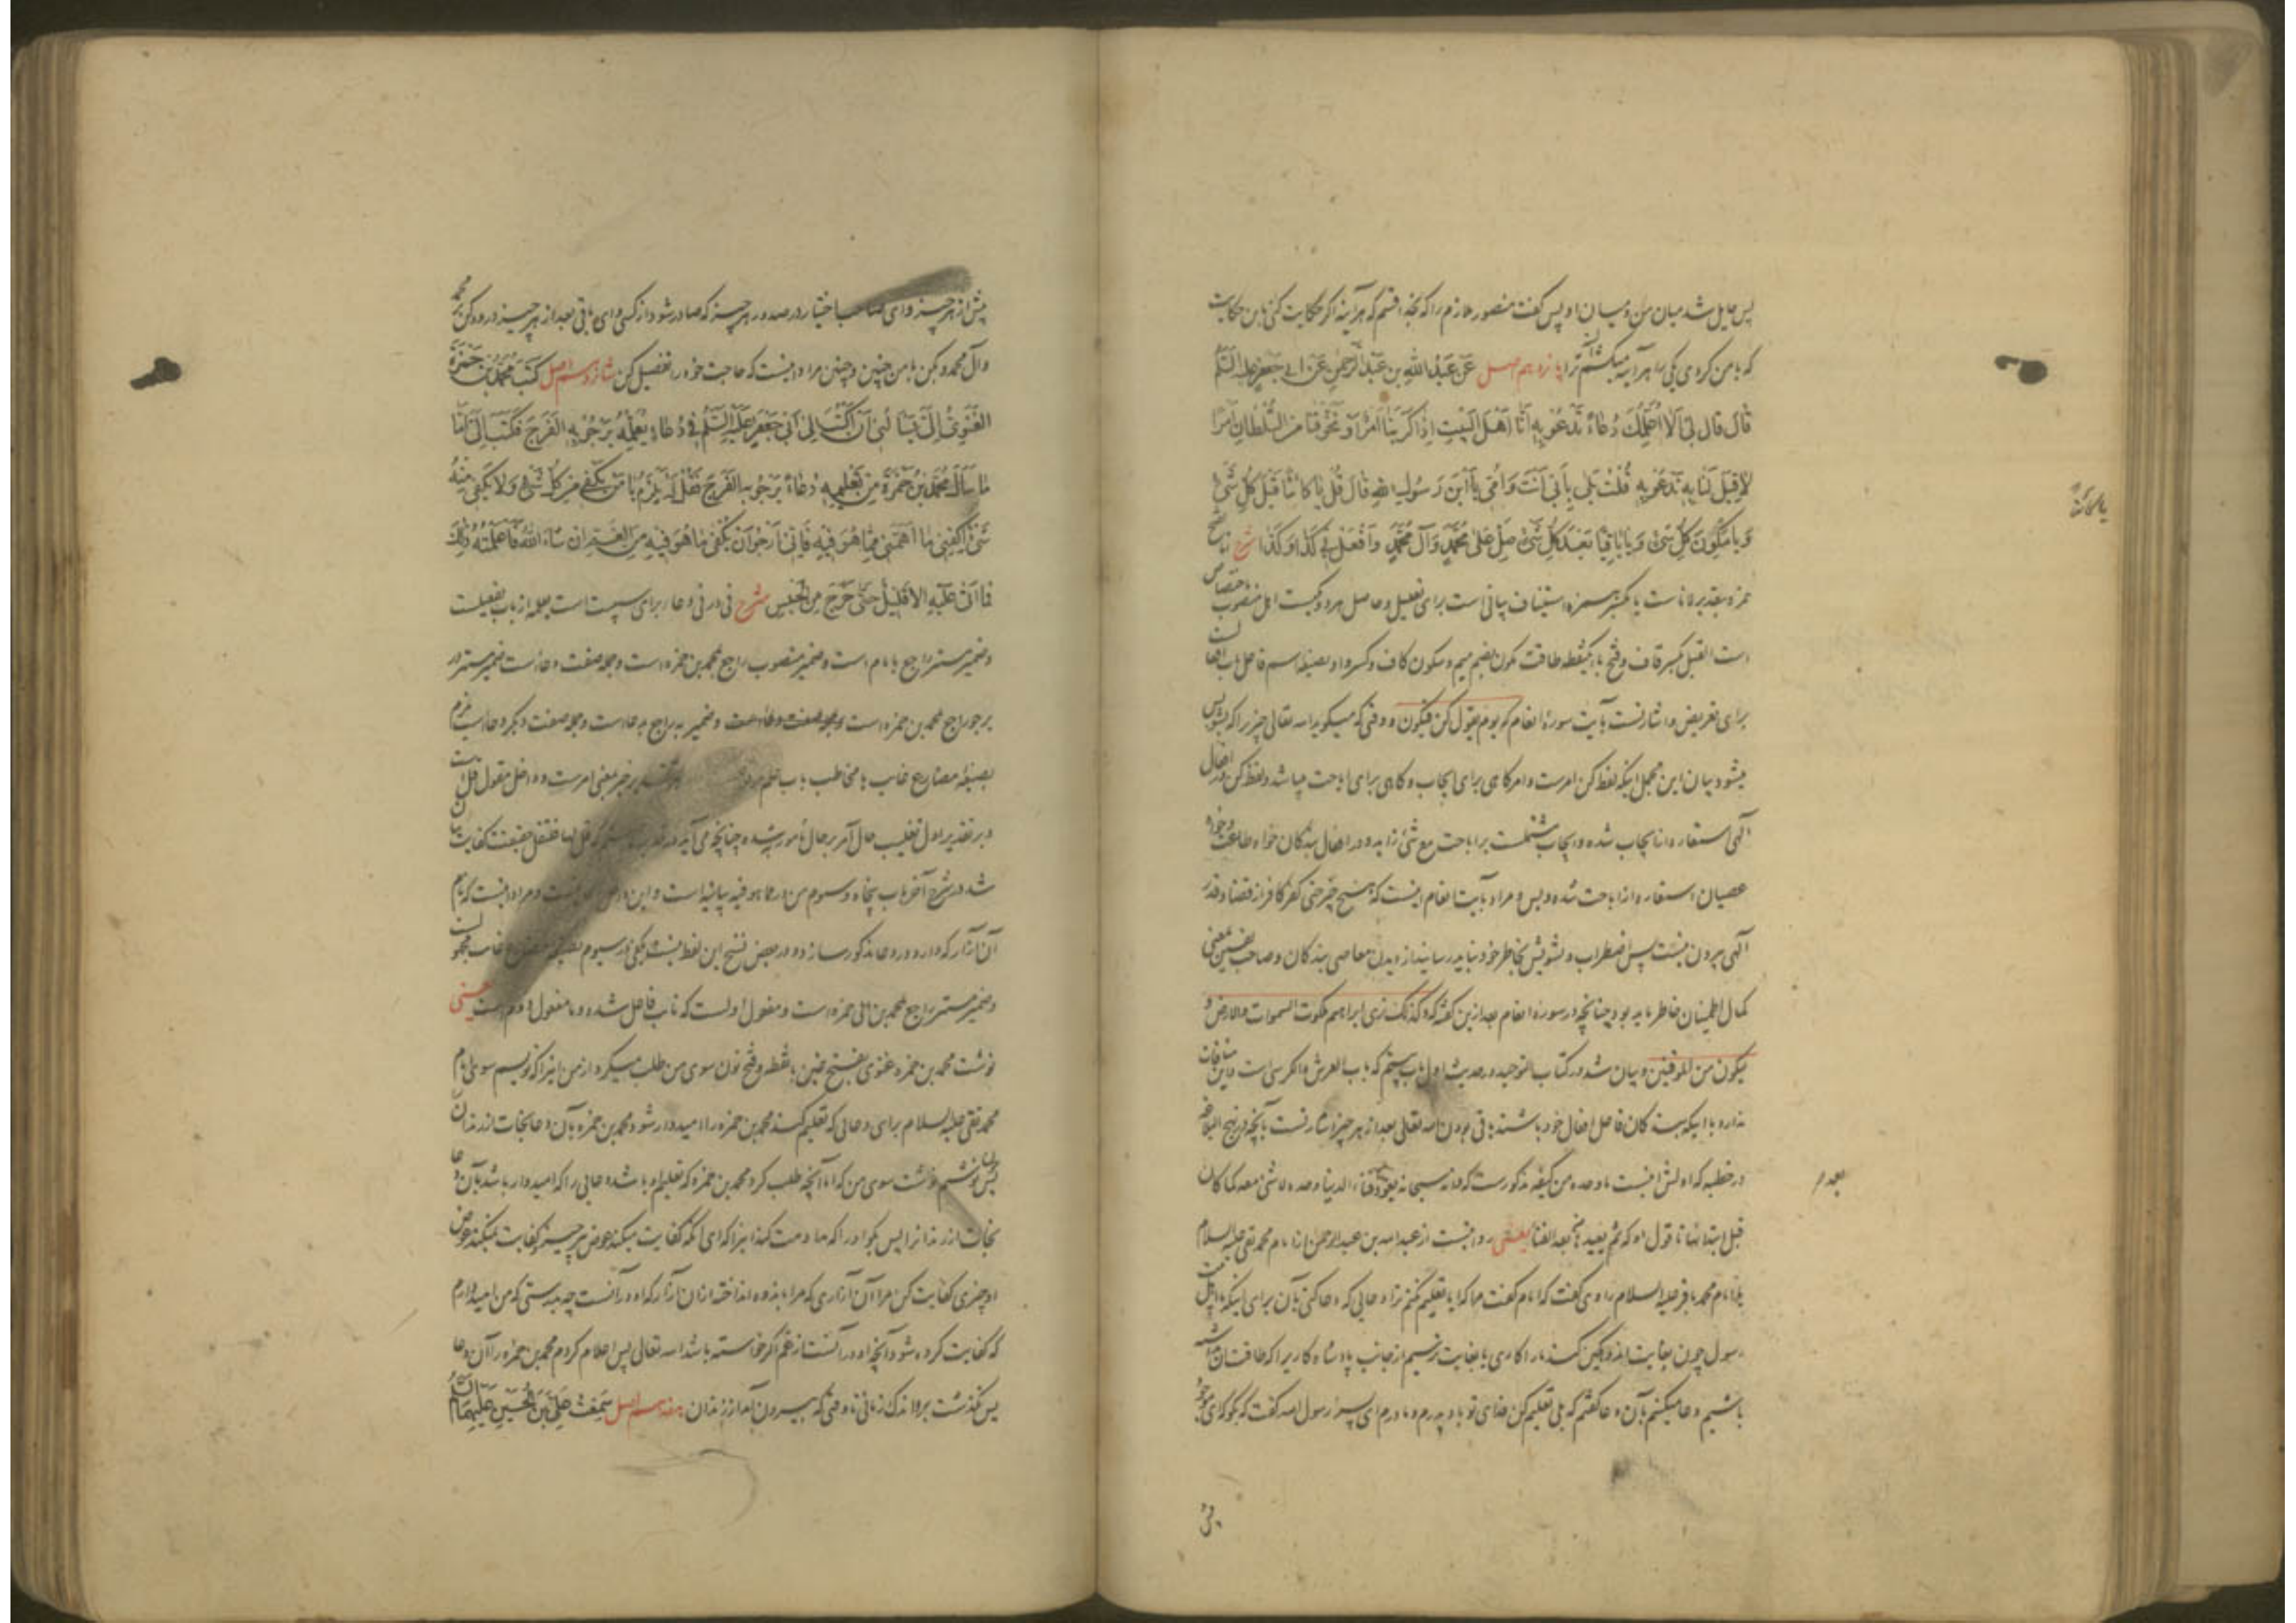 پس حایل شد میان من و میان او پس گفت منصور ملازم را که بخدا قسم که هرآینه اگر حکایت کنی باین حکایت
که بامن کردی یکی را هرآینه میکشم ترا یازدهم اصل عَن عَبْدِ اللّٰهِ بنِ عَبْدِ الرَّحْمٰنِ عَنْ اَبِی جَعْفَرٍ عَلَیْهِ السَّلَمُ
قَالَ قَالَ لِی اَلَا اُعَلِّمُكَ دُعَاءً نَدْعُو بِهِ اِنَّا اَهْلَ الْبَیْتِ اِذَا كَرَبَنَا اَمْرٌ وَتَخَوَّفْنَا مِنَ السُّلْطَانِ اَمْرًا
لَا قِبَلَ لَنَا بِهِ نَدْعُو بِهِ قُلْتُ بَلٰی بِاَبِی اَنْتَ وَاُمِّی یَا ابْنَ رَسُولِ اللّٰهِ قَالَ قُلْ یَا كَائِنًا قَبْلَ كُلِّ شَیْءٍ
وَیَا مُكَوِّنَ كُلِّ شَیْءٍ وَیَا بَاقِیًا بَعْدَ كُلِّ شَیْءٍ صَلِّ عَلٰی مُحَمَّدٍ وَآلِ مُحَمَّدٍ وَافْعَلْ بِی كَذَا وَكَذَا شرح انا بفتح
همزه بتقدیر لانا است یا بکسر همزه استیناف بیانی است برای تعلیل و حاصل هردو یکیست اهل منصوب باختصاص
است القبل بکسر قاف و فتح با یکنقطه طاقت مکون بضم میم و سکون کاف و کسر واو بصیغه اسم فاعل باب افعال
برای تعریض و اشارتست بآیت سوره انعام که یوم یقول کن فیکون و وقتی که میکوید الله تعالی چیز را که بشو پس
میشود بیان این مجمل اینکه لفظ کن امرست و امر گاهی برای ایجاب و گاهی برای اباحت میباشد و لفظ کن در افعال
الهی استعاره از ایجاب شده و ایجاب مشتملست بر اباحت مع شئ زاید و در افعال بندگان خواه طاعت و خواه
عصیان استعاره از اباحت شده و بس و مراد بآیت انعام اینست که هیچ چیز حتی کفر کافر از قضا و قدر
الهی بیرون نیست پس اضطراب و تشویش بخاطر خود نباید رسانید از دیدن معاصی بندگان و صاحب یقین بمعنی
کمال اطمینان خاطر باید بود چنانچه در سوره انعام بعد ازین گفته که و کذلک نری ابراهیم ملکوت السموات والارض و
لیکون من الموقنین و بیان شد در کتاب التوحید در حدیث اول باب بیستم که باب العرش والکرسی است و این منافات
ندارد با اینکه بندگان فاعل افعال خود باشند باقی بودن الله تعالی بعد از هر چیز اشارتست بآنچه در نهج البلاغه
در خطبه که اولش اینست ما وحده من کیفه مذکورست که وانه سبحانه یعود بعد فناء الدنیا وحده لا شئ معه کما کان
قبل ابتدائها تا قول او که ثم یعیدها بعد الفنا یعنی روایتست از عبدالله بن عبدالرحمن از امام محمد تقی علیه السلام
یا امام محمد باقر علیه السلام راوی گفت که امام گفت مرا که آیا تعلیم نکنم ترا دعایی که دعا کنی بآن برای اینکه ما اهل بیت
رسول چون بغایت اندوهگین کند ما را کاری یا بغایت ترسیم از جانب پادشاه کاریرا که طاقت آن نداشته
باشیم دعا میکنیم بآن دعا گفتم که بلی تعلیم کن فدای تو باد پدرم و مادرم ای پسر رسول الله گفت که بگو که ای موجود
بعد م
پیش از هر چیز و ای صاحب اختیار در صدور هر چیز که صادر شود از کسی و ای باقی بعد از هر چیز درود کن بر محمد
و آل محمد و بکن بامن چنین و چنین مراد اینست که حاجت خود را تفصیل کن شانزدهم اصل كَتَبَ مُحَمَّدُ بْنُ حَمْزَةَ
الْغَنَوِیُّ اِلَیَّ یَسْاَلُنِی اَنْ اَكْتُبَ اِلٰی اَبِی جَعْفَرٍ عَلَیْهِ السَّلَمُ فِی دُعَاءٍ یُعَلِّمُهُ یَرْجُو بِهِ الْفَرَجَ فَكَتَبَ اِلَیَّ اَمَّا
مَا سَاَلَ مُحَمَّدُ بْنُ حَمْزَةَ مِنْ تَعْلِیمِهِ دُعَاءً یَرْجُو بِهِ الْفَرَجَ فَقُلْ لَهُ یَلْزَمُ یَا مَنْ یَكْفِی مِنْ كُلِّ شَیْءٍ وَلَا یَكْفِی مِنْهُ
شَیْءٌ اِكْفِنِی مَا اَهَمَّنِی مِمَّا هُوَ فِیهِ فَاِنِّی اَرْجُو اَنْ یُكْفٰی مَا هُوَ فِیهِ مِنَ الْغَمِّ اِنْ شَاءَ اللّٰهُ فَاَعْلَمْتُهُ ذٰلِكَ
فَمَا اَتٰی عَلَیْهِ اِلَّا قَلِیلٌ حَتّٰی خَرَجَ مِنَ الْحَبْسِ شرح فی در فی دعاء برای سببیت است یعلمه از باب تفعیلست
و ضمیر مستتر راجع بامام است و ضمیر منصوب راجع بمحمد بن حمزه است و جمله صفت دعاست ضمیر مستتر در
یرجو راجع بمحمد بن حمزه است و جمله صفت دعاست و ضمیر به راجع بدعاست و جمله صفت دیگر دعاست یلزم
بصیغه مضارع غایب یا مخاطب باب علم خبر بمعنی امرست و داخل مقول قل
و بر تقدیر اول تغلیب حال آمر بر حال مأمور شده چنانچه می آید در قل لها فتقل حقیقت کفایت بیان
شد در شرح آخر باب پنجاه و سوم من در مما هو فیه بیانیه است و این و مراد اینست که نام
آن آزار که دارد در دعا مذکور سازد و در بعض نسخ این لفظ نیست یکفی در سیوم بصیغه مضارع غایب مجهول
و ضمیر مستتر راجع بمحمد بن حمزه است و مفعول اولست که نایب فاعل شده و ما مفعول دوم است یعنی
نوشت محمد بن حمزه غنوی بفتح غین بانقطه و فتح نون سوی من طلب میکرد از من اینرا که نویسم سوی امام
محمد تقی علیه السلام برای دعایی که تعلیم کند محمد بن حمزه را امیدوار شود محمد بن حمزه بآن دعا نجات از زندان
پس نوشتم نوشت سوی من که اما آنچه طلب کرد محمد بن حمزه که تعلیم او باشد دعایی را که امیدوار باشد بآن دعا
نجات از زندانرا پس بگو او را که مداومت کند اینرا که ای آنکه کفایت میکند عوض هر چیز و کفایت نمیکند عوض
او چیزی کفایت کن مرا آن آزاری که مرا باندوه انداخته از آن آزار که او در آنست چه بدرستی که من امید دارم
که کفایت کرده شود آنچه او در آنست از غم اگر خواسته باشد الله تعالی پس اعلام کردم محمد بن حمزه را آن دعا
پس نگذشت برو اندک زمانی تا وقتی که بیرون آمد از زندان هفدهم اصل سَمِعْتُ عَلِیَّ بْنَ الْحُسَیْنِ عَلَیْهِمَا السَّلَمُ